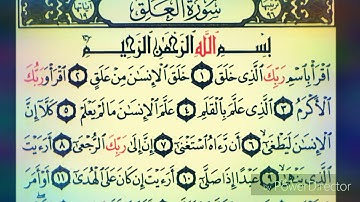 سورة العلق
بسم الله الرحمن الرحيم
ٱقْرَأْ بِٱسْمِ رَبِّكَ ٱلَّذِى خَلَقَ ١ خَلَقَ ٱلْإِنسَٰنَ مِنْ عَلَقٍ ٢ ٱقْرَأْ وَرَبُّكَ
ٱلْأَكْرَمُ ٣ ٱلَّذِى عَلَّمَ بِٱلْقَلَمِ ٤ عَلَّمَ ٱلْإِنسَٰنَ مَا لَمْ يَعْلَمْ ٥ كَلَّآ إِنَّ
ٱلْإِنسَٰنَ لَيَطْغَىٰٓ ٦ أَن رَّءَاهُ ٱسْتَغْنَىٰٓ ٧ إِنَّ إِلَىٰ رَبِّكَ ٱلرُّجْعَىٰٓ ٨ أَرَءَيْتَ
ٱلَّذِى يَنْهَىٰ ٩ عَبْدًا إِذَا صَلَّىٰٓ ١٠ أَرَءَيْتَ إِن كَانَ عَلَى ٱلْهُدَىٰٓ ١١ أَوْ أَمَرَ
PowerDirector